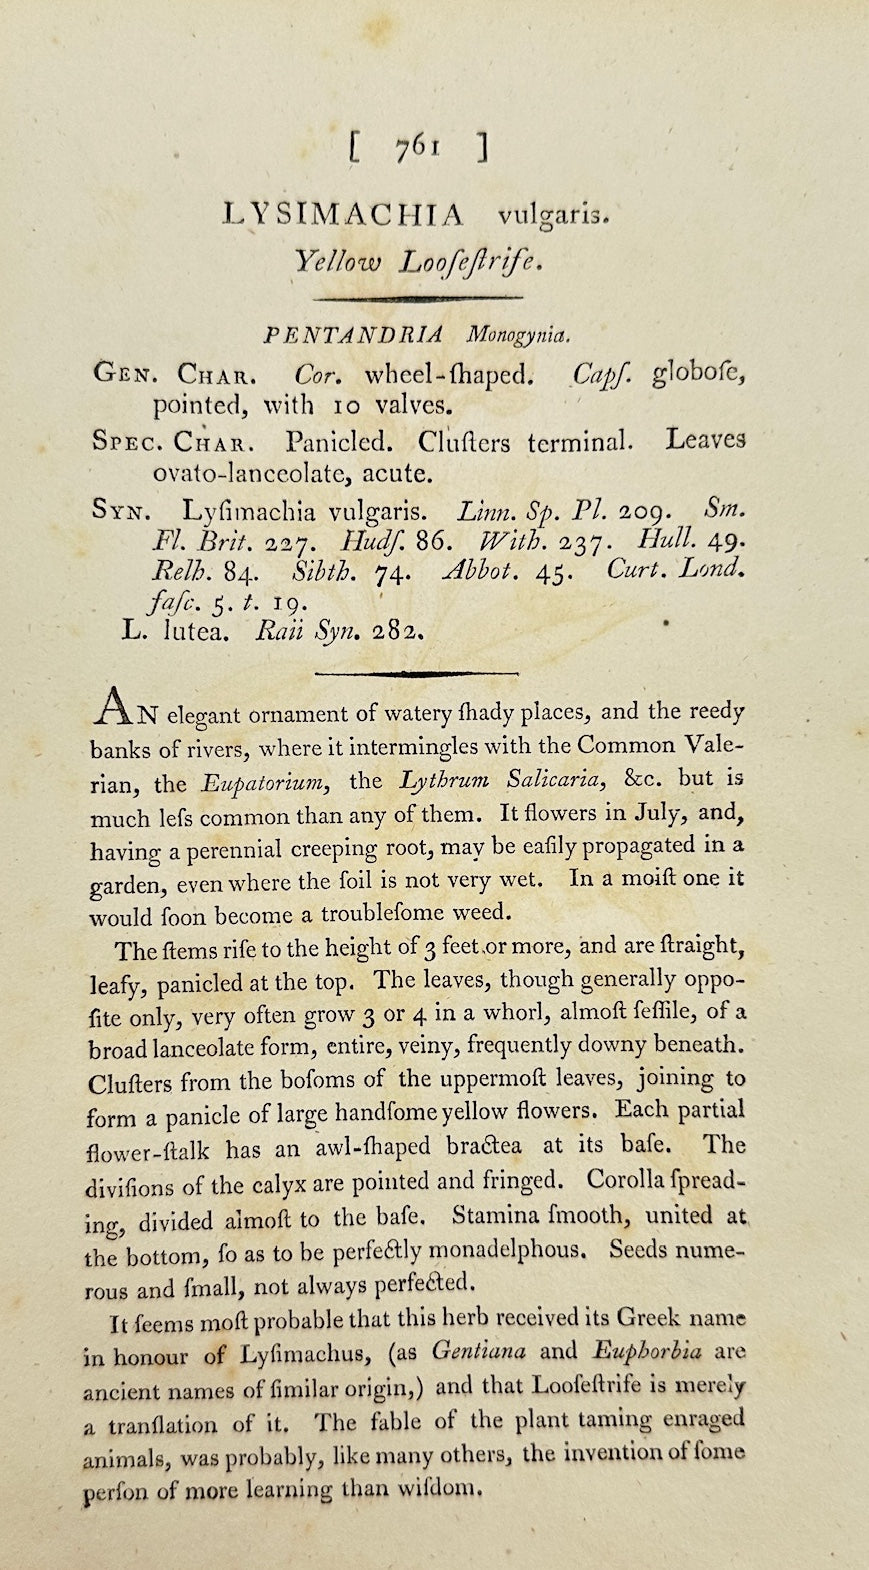 [ 761 ]
LYSIMACHIA vulgaris.
Yellow Looſeſtrife.
PENTANDRIA Monogynia.
GEN. CHAR. Cor. wheel-ſhaped. Capſ. globoſe,
pointed, with 10 valves.
SPEC. CHAR. Panicled. Cluſters terminal. Leaves
ovato-lanceolate, acute.
SYN. Lyſimachia vulgaris. Linn. Sp. Pl. 209. Sm.
Fl. Brit. 227. Hudſ. 86. With. 237. Hull. 49.
Relh. 84. Sibth. 74. Abbot. 45. Curt. Lond.
faſc. 5. t. 19.
L. lutea. Raii Syn. 282.
AN elegant ornament of watery ſhady places, and the reedy
banks of rivers, where it intermingles with the Common Vale-
rian, the Eupatorium, the Lythrum Salicaria, &c. but is
much leſs common than any of them. It flowers in July, and,
having a perennial creeping root, may be eaſily propagated in a
garden, even where the ſoil is not very wet. In a moiſt one it
would ſoon become a troubleſome weed.
The ſtems riſe to the height of 3 feet or more, and are ſtraight,
leafy, panicled at the top. The leaves, though generally oppo-
ſite only, very often grow 3 or 4 in a whorl, almoſt ſeſſile, of a
broad lanceolate form, entire, veiny, frequently downy beneath.
Cluſters from the boſoms of the uppermoſt leaves, joining to
form a panicle of large handſome yellow flowers. Each partial
flower-ſtalk has an awl-ſhaped bractea at its baſe. The
diviſions of the calyx are pointed and fringed. Corolla ſpread-
ing, divided almoſt to the baſe. Stamina ſmooth, united at
the bottom, ſo as to be perfectly monadelphous. Seeds nume-
rous and ſmall, not always perfected.
It ſeems moſt probable that this herb received its Greek name
in honour of Lyſimachus, (as Gentiana and Euphorbia are
ancient names of ſimilar origin,) and that Looſeſtrife is merely
a tranſlation of it. The fable of the plant taming enraged
animals, was probably, like many others, the invention of ſome
perſon of more learning than wiſdom.